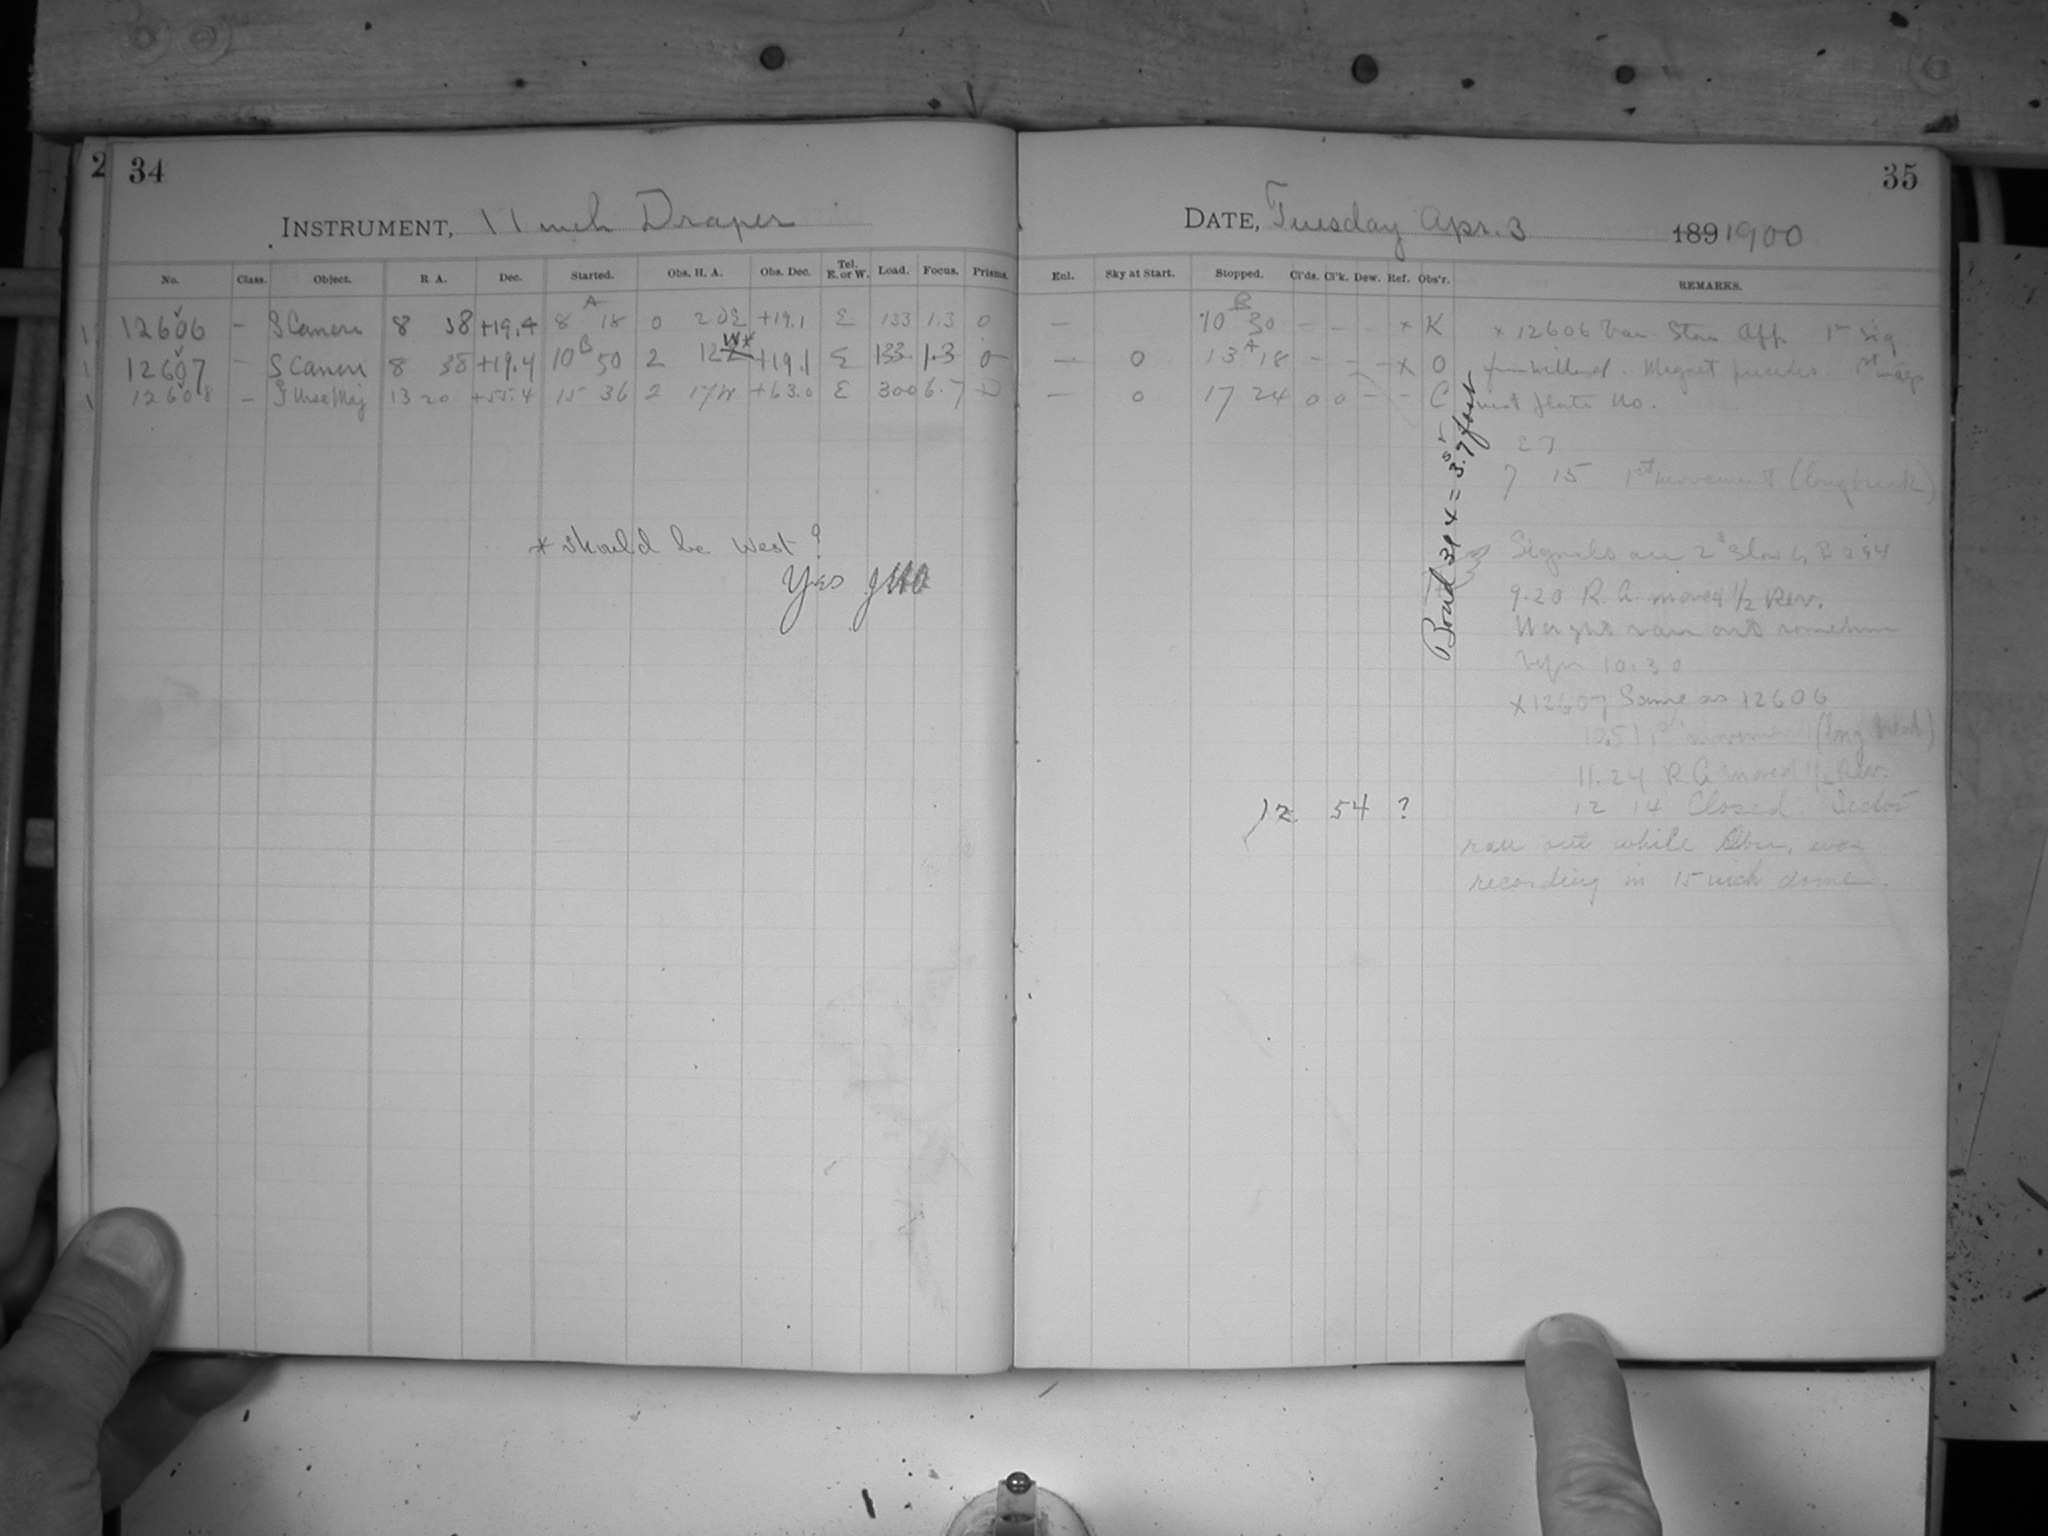 2 34
INSTRUMENT, 11 inch Draper
No. Class. Object. R. A. Dec. Started. Obs. H. A. Obs. Dec. Tel. E. or W. Load. Focus. Prisms.
12606 – S Cancri 8 38 +19.4 8 A 18 0 20 E +19.1 E 133 1.3 0
12607 – S Cancri 8 38 +19.4 10 B 50 2 12 W* +19.1 E 133 1.3 0
12608 – Ursae Maj 13 20 +55.4 15 36 2 17 W +63.0 E 300 6.7
* should be West?
Yes
35
DATE, Tuesday Apr. 3 1891900
Enl. Sky at Start. Stopped. Cl'ds. Cl'k. Dew. Ref. Obs'r. REMARKS.
– 10 B 30 – – – x K x 12606 Var. Star App. 1st sig
– 0 13 A 18 – – – x O from Willard. Magnet precedes.
– 0 17 24 0 0 – – C plate no.
7 15 1st movement (long break)
Bond 394 = 3.7 fast
Signals are 2s slow
9.20 R.A. moved 1/2 Rev.
Weights ran out sometime
before 10.30
x 12607 Same as 12606
10.51 1st movement (long break)
11.24 R.A. moved 1/2 Rev.
12 54 ?
12 14 Closed. Sector
ran out while Obsr. was
recording in 15 inch dome.